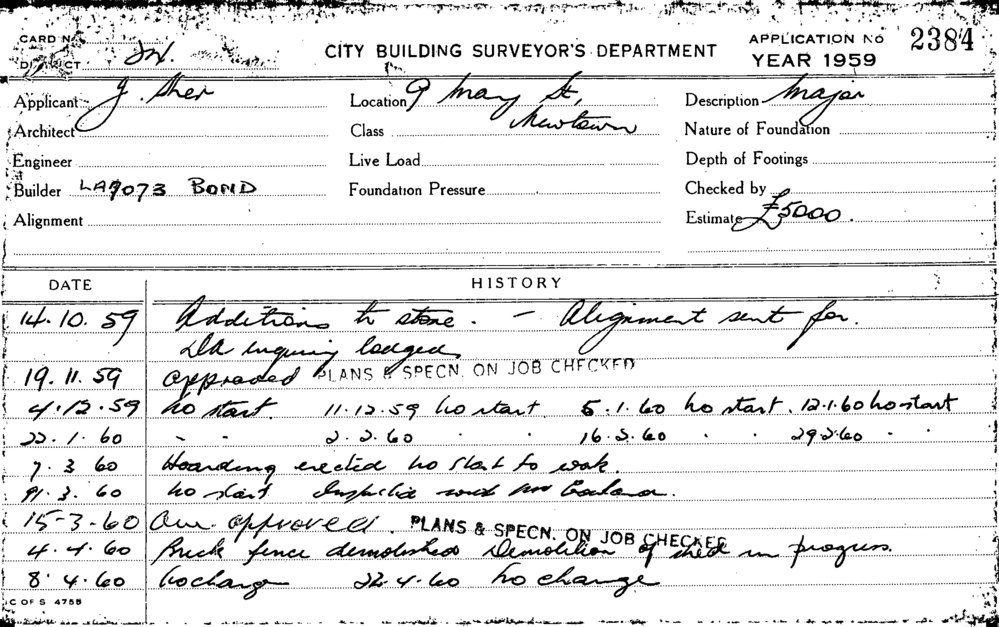 CARD No.
CITY BUILDING SURVEYOR'S DEPARTMENT
APPLICATION No 2384
DISTRICT
YEAR 1959
Applicant J. Sher
Location 9 Mary St,
Newtown
Description Major
Architect
Class
Nature of Foundation
Engineer
Live Load
Depth of Footings
Builder BOND
Foundation Pressure
Checked by
Alignment
Estimate £5000.
DATE HISTORY
14.10.59 Additions to store. - Alignment sent for.
DA enquiry lodged
19.11.59 approved PLANS & SPECN. ON JOB CHECKED
4.12.59 No start. 11.12.59 No start 5.1.60 No start. 12.1.60 No start
22.1.60 - - 2.2.60 . . 16.2.60 . . 29.2.60 . .
7.3.60 Hoarding erected no start to work.
3.60 no start Inspection with
15-3-60 Am. approved. PLANS & SPECN. ON JOB CHECKED
4.4.60 Brick fence demolished Demolition of shed in progress.
8.4.60 No change 22.4.60 No change
C OF S 4755